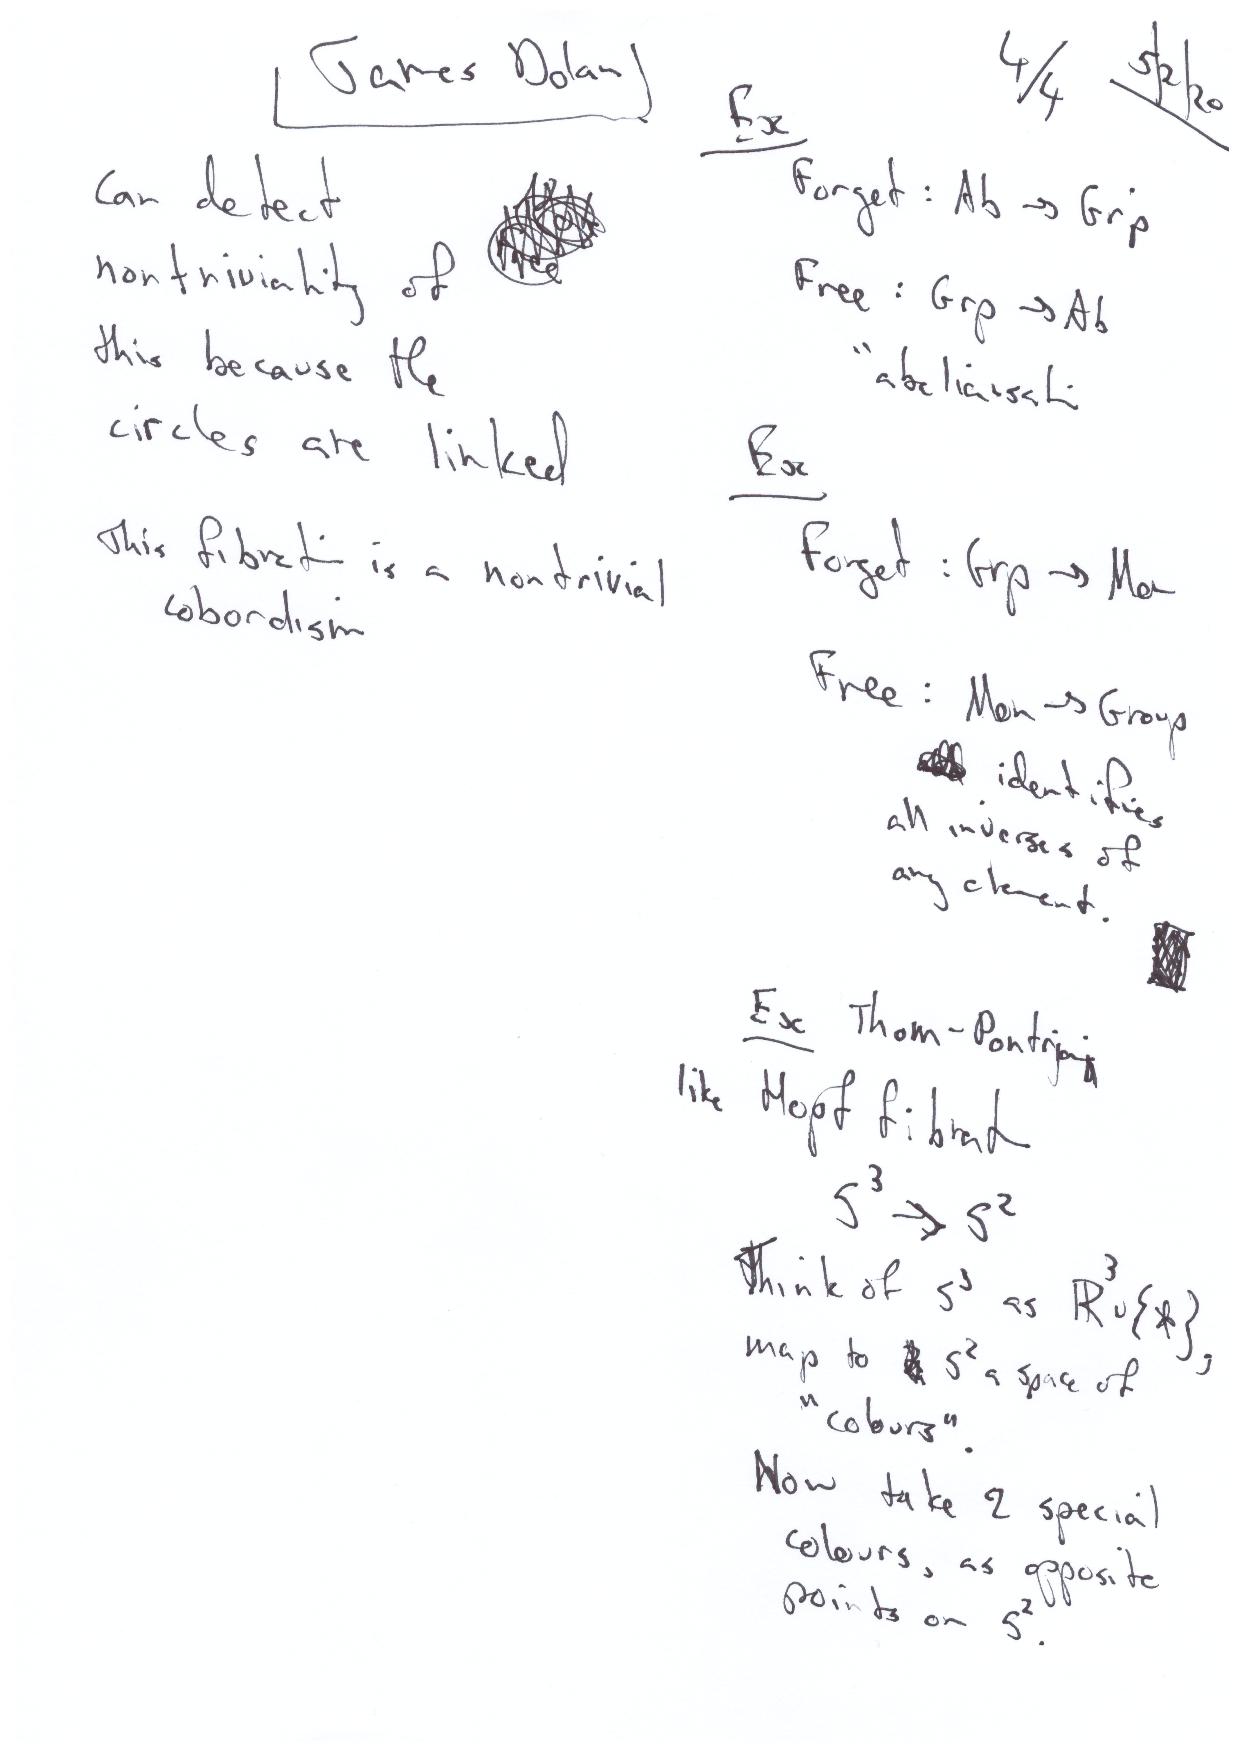 James Dolan
4/4 5/2/20
Can detect
nontriviality of
this because the
circles are linked
This fibrati is a nontrivial
cobordism
Ex
Forget : Ab → Grp
Free : Grp → Ab
"abelianisati
Ex
Forget : Grp → Mon
Free : Mon → Group
identifies
all inverses of
any element.
Ex Thom-Pontrjagin
like Hopf fibrat
S³ → S²
Think of S³ as ℝ³∪{*},
map to S² a space of
"colours".
Now take 2 special
colours, as opposite
points on S².